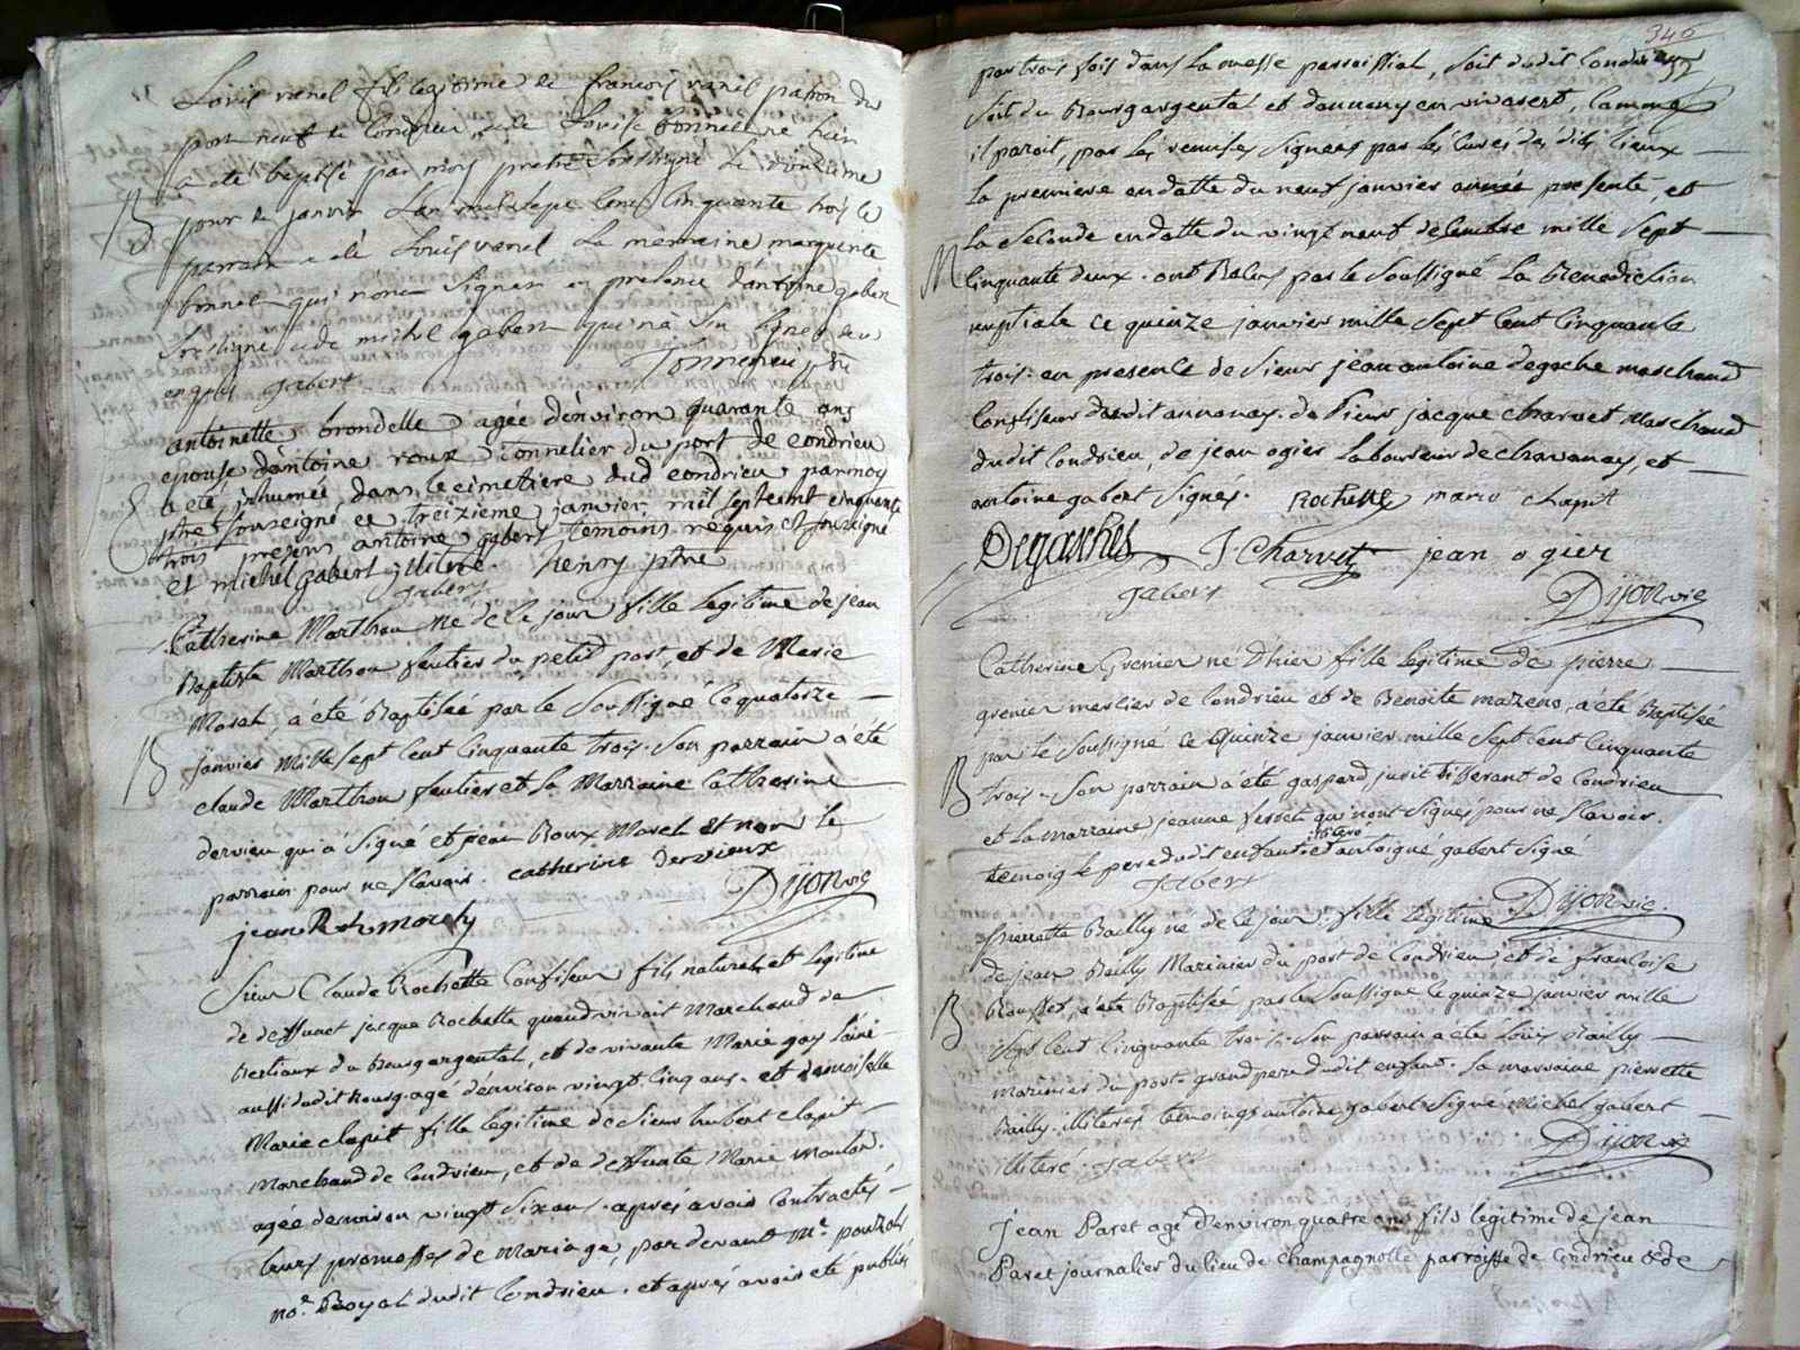 Louis vanel fils legitime de francois vanel patron du
port neuf de Condrieu, et de Louise bonnet ne hier
a eté baptisé par moy pretre Soussigné Le
B jour de janvier Lan mil sept Cent Cinquante trois Le
parrain a eté Louis vanel La marraine marguerite
bonnet qui nont Signer en presence dantoine gabert
Soussigne et de michel gabert qui n'a Su signer
gabert
antoinette brondelle agée d'énviron quarante ans
epouse d'antoine roux tonnelier du port de condrieu
a eté inhumée dans le cimetiere dud condrieu par moy
ptre Sousseigné ce treizieme janvier mil septcent cinquante
trois presens antoine gabert temoins requis et Sousseigné
et michél gabert illitere. henry ptre
gabert
Catherine Marthou né de ce jour fille legitime de jean
Baptiste Marthou du petit port, et de Marie
Morel, à été Baptisée par le Soussigné le quatorze
B janvier Mille sept Cent Cinquante trois. Son parrain à été
claude Marthou et la Marraine Catherine
dervieu qui à Signé et jean Roux Morel et non le
parrain pour ne Scavoir. catherine Dervieux
Dijon vic
jean morel
Sieur Claude Rochette Confiseur fils naturel et legitime
de deffunct jacque Rochette quand vivoit Marchand de
Bestiaux du Bourgargental, et de vivante Marie gay
aussi dudit Bourg. agé d'énviron vingt Cinq ans. et demoiselle
Marie clapit fille legitime de Sieur hubert Clapit
Marchand de Condrieu, et de deffunte Marie Moulon.
agée denviron vingt Six ans. aprés avoir Contractés
leurs promesses de Mariage, par devant Me.
noe. Royal dudit Condrieu. et aprés avoir eté publiés
346
par trois fois dans la messe parroissial, Soit dudit Condrieu
Soit du Bourgargental et dannonay en vivarest, Comme
il paroit, par les remises Signees par lés Curés dés dits lieux
La premiere en datte du neuf janvier année presente, et
La Seconde en datte du vingt neuf decembre mille Sept
M Cinquante deux. ont Recus par le Soussigné La Benediction
nuptiale ce quinze janvier mille Sept Cent Cinquante
trois. en presence de Sieur jean antoine degache marchand
Confiseur dudit annonay. de Sieur jacque charvet Marchand
dudit Condrieu, de jean ogier Laboureur de chavanay, et
antoine gabert Signés. Rochette marie clapit
Degaches J Charvet jean ogier
gabert Dijon vic
Catherine Grenier né D'hier fille legitime de pierre
grenier de Condrieu et de Benoite mazens, à été Baptisée
par le Soussigné ce Quinze janvier mille Sept cent Cinquante
B trois. Son parrain à été gaspard de Condrieu
et La marraine jeanne qui nont Signés pour ne Scavoir.
illitero
temoig le pere dudit enfant et antoigne gabert Signé
gabert Dijon vic.
Pierrette Bailly né de ce jour. fille legitime
de jean Bailly Marinier du port de Condrieu et de francoise
B Rousset, à été Baptisée par le Soussigne le quinze janvier mille
Sept Cent Cinquante trois. Son parrain a eté Louis Bailly
marinier du port. grand pere dudit enfant. La marraine pierrette
Bailly. illiterés temoings antoine gabert Signe Michel gabert
illiteré. gabert Dijon vic
jean Paret agé d'énviron quatre ans fils legitime de jean
Paret journalier du lieu de Champagnolle parroisse de Condrieu & de